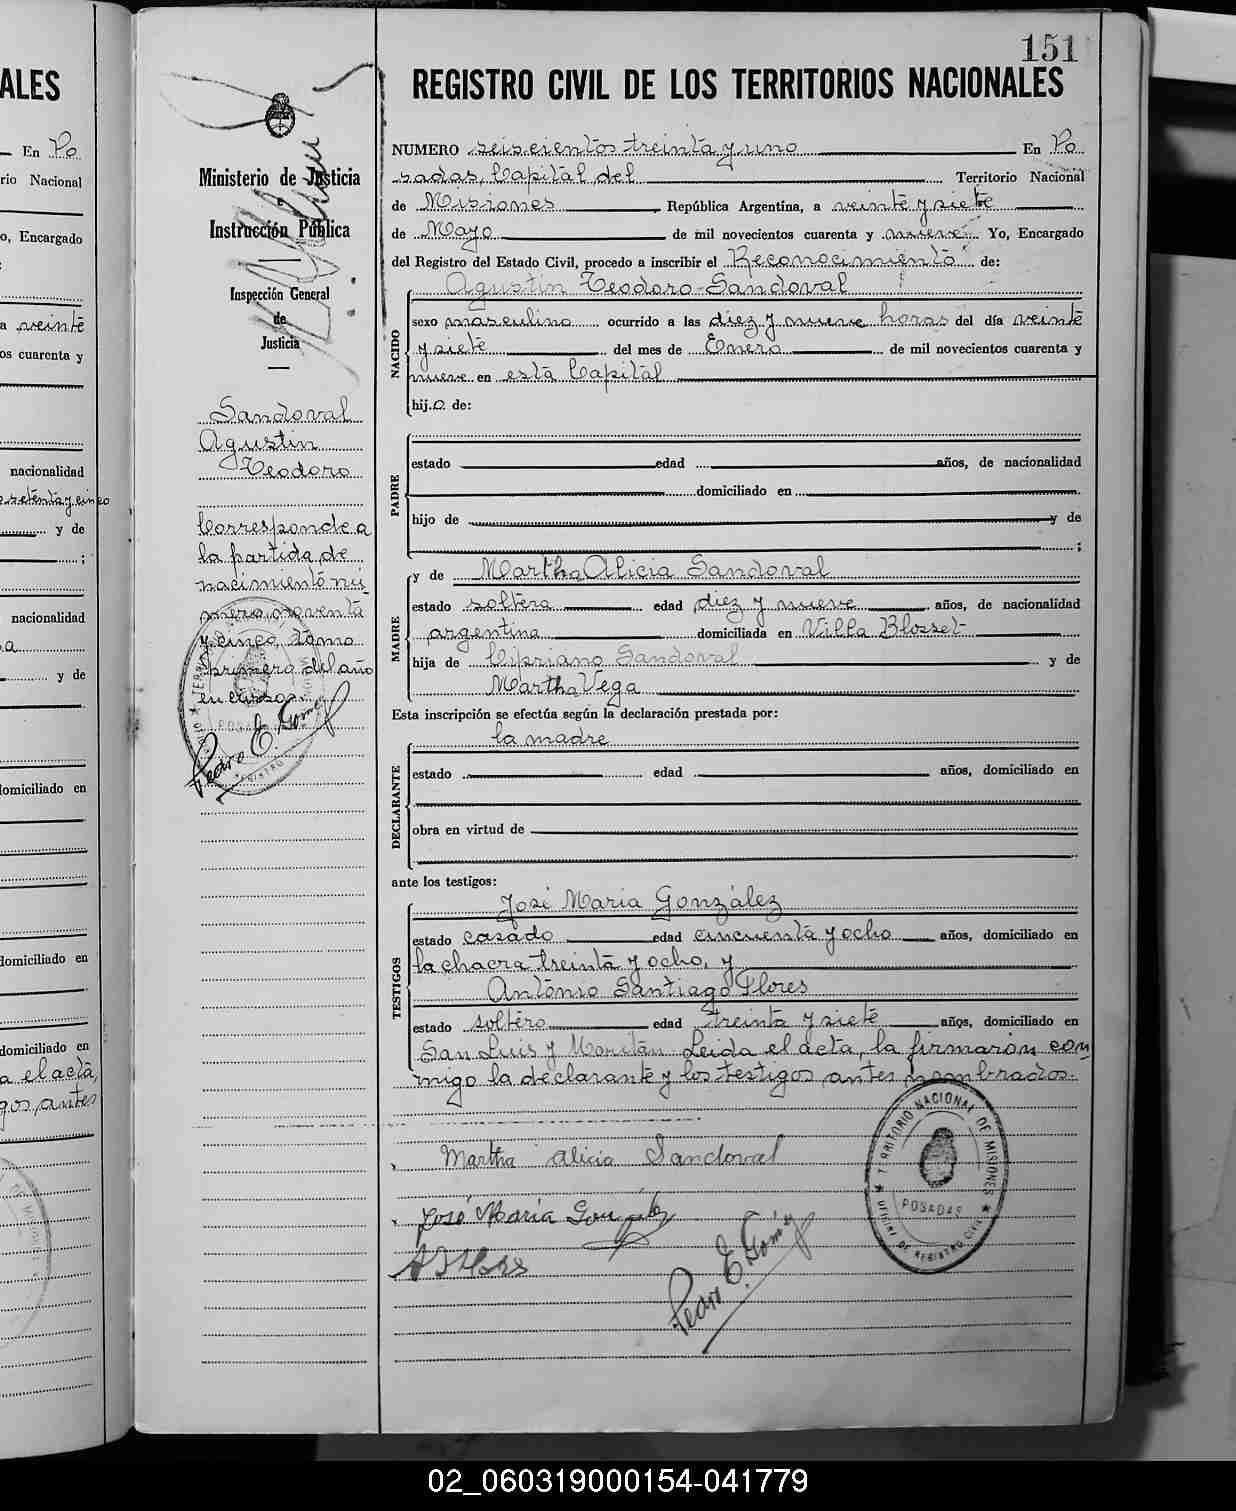 ALES
En Po
rio Nacional
o, Encargado
a veinte
os cuarenta y
nacionalidad
setenta y cinco
y de
;
nacionalidad
a
y de
domiciliado en
domiciliado en
domiciliado en
a el acta,
gos, antes
151
REGISTRO CIVIL DE LOS TERRITORIOS NACIONALES
Ministerio de Justicia
e
Instrucción Pública
Inspección General
de
Justicia
Sandoval
Agustin
Teodoro
Corresponde a
la partida de
nacimiento nú
mero noventa
y cinco, tomo
primero del año
en curso.
Pedro E. Gómez
NUMERO seiscientos treinta y uno En Po
sadas, Capital del Territorio Nacional
de Misiones, República Argentina, a veinte y siete
de Mayo de mil novecientos cuarenta y nueve. Yo, Encargado
del Registro del Estado Civil, procedo a inscribir el Reconocimiento de:
NACIDO
Agustin Teodoro Sandoval
sexo masculino ocurrido a las diez y nueve horas del día veinte
y siete del mes de Enero de mil novecientos cuarenta y
nueve en esta Capital
hij.o de:
PADRE
estado edad años, de nacionalidad
domiciliado en
hijo de y de
;
MADRE
y de Martha Alicia Sandoval
estado soltera edad diez y nueve años, de nacionalidad
argentina domiciliada en Villa Blosset
hija de Cipriano Sandoval y de
Martha Vega
Esta inscripción se efectúa según la declaración prestada por:
DECLARANTE
la madre
estado edad años, domiciliado en
obra en virtud de
ante los testigos:
TESTIGOS
José Maria González
estado casado edad cincuenta y ocho años, domiciliado en
la chacra treinta y ocho, y
Antonio Santiago Flores
estado soltero edad treinta y siete años, domiciliado en
San Luis y Moritán. Leida el acta, la firmaron con
migo la declarante y los testigos antes nombrados.
Martha Alicia Sandoval
José María González
A S Flores
Pedro E. Gómez
TERRITORIO NACIONAL DE MISIONES
POSADAS
OFICINA DE REGISTRO CIVIL
02_060319000154-041779